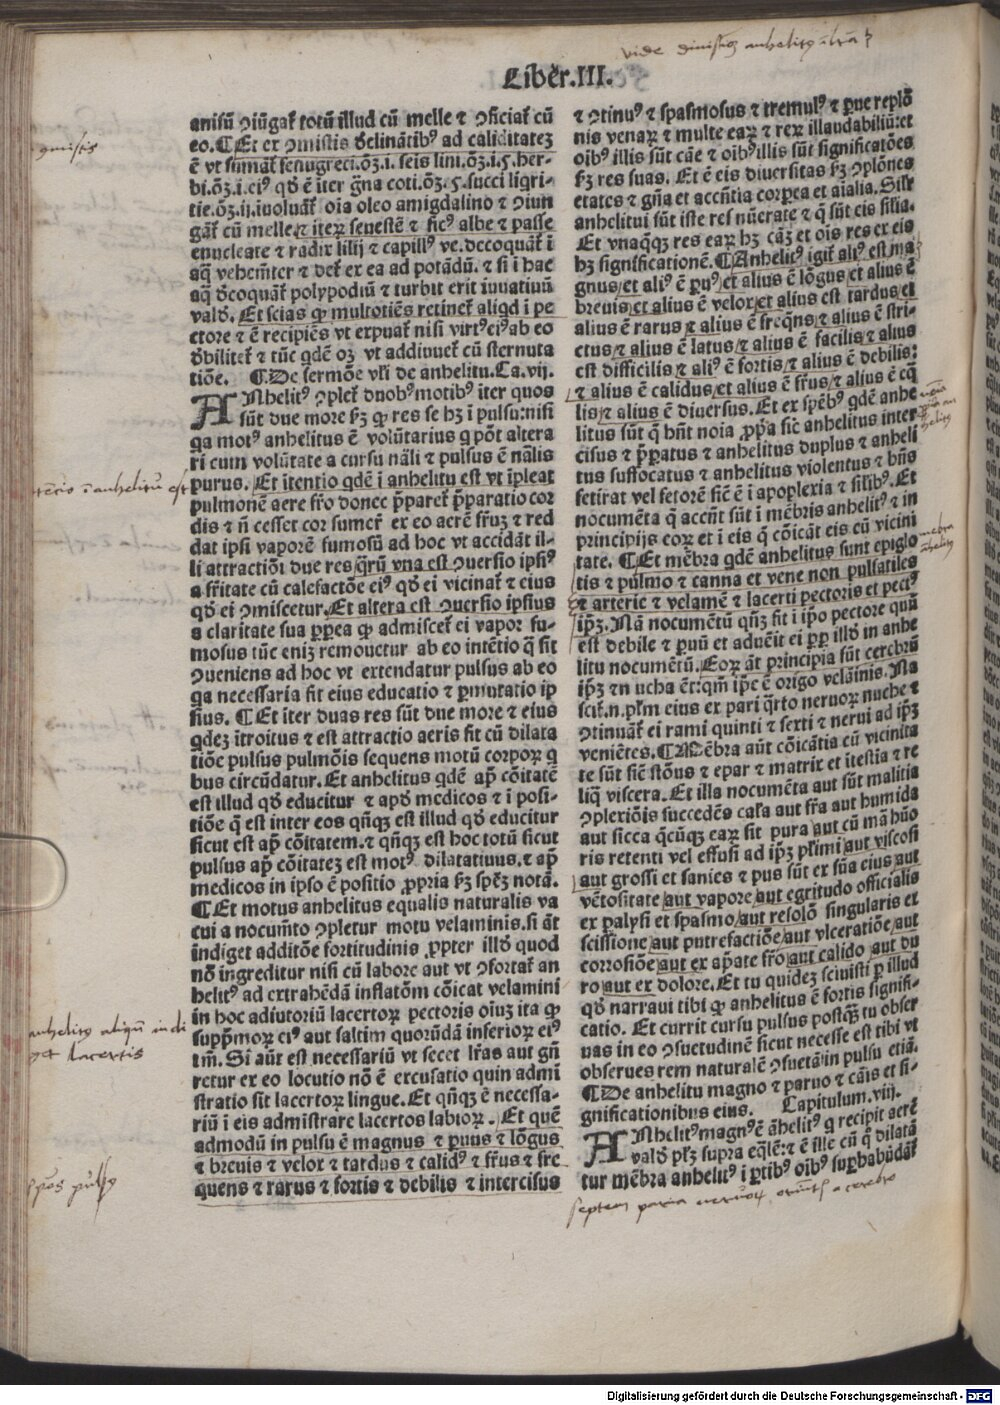 vide divisiones anhelitus
Liber.III.
anisũ ꝯiũgat̃ totũ illud cũ melle ⁊ ꝯficiat̃ cũ
eo. ¶ Et ex ꝯmistis ꝺclinãtibꝰ ad caliditatez
ẽ vt sumat̃ fenugreci.õʒ.i. seis lini.õʒ.i.ꝭ.her-
bi.õʒ.i.eiꝰ qđ ẽ iter gr̃na coti.õʒ.ꝭ.succi liqri-
tie.õʒ.ij.ĩuoluãt̃ oĩa oleo amigdalino ⁊ ꝯiun
gãt̃ cũ melle.⁊ iteꝝ seuestẽ ⁊ ficꝰ albe ⁊ passe
enucleate ⁊ radix lilij ⁊ capillꝰ ve.decoquãt̃ ĩ
aq̃ vehem̃ter ⁊ det̃ ex ea ad potãdũ. ⁊ si ĩ hac
aq̃ ꝺcoquãt̃ polypodiũ ⁊ turbit erit iuuatiuũ
valđ. Et scias ꝙ multotiẽs retinet̃ aliqd ĩ pe
ctore ⁊ ẽ recipiẽs vt expuat̃ nisi virtꝰ eiꝰ ab eo
ꝺbilitet̃ ⁊ tũc qdẽ oʒ vt addiuuet̃ cũ sternuta
tiõe. ¶ De sermõe vl̃i de anhelitu. Ca.vij.
ANhelitꝰ ꝯplet̃ duobꝰ motibꝰ iter quos
sũt due more ẜʒ ꝙ res se hʒ ĩ pulsu: nisi
qa motꝰ anhelitus ẽ volũtarius q põt altera
ri cum volũtate a cursu nãli ⁊ pulsus ẽ nãlis
purus. Et ĩtentio qdẽ ĩ anhelitu est vt ĩpleat
pulmonẽ aere fr̃o donec p̃paret̃ p̃paratio cor
dis ⁊ ñ cesset cor sumer̃ ex eo aerẽ fr̃uʒ ⁊ red
dat ipsi vaporẽ fumosũ ad hoc vt accidãt il-
li attractiõi due res q̃rũ vna est ꝯuersio ipsiꝰ
a fr̃itate cũ calefactõe eiꝰ qđ ei vicinat̃ ⁊ eius
qđ ei ꝯmiscetur. Et altera est ꝯuersio ipsius
a claritate sua ꝓpea ꝙ admiscet̃ ei vapor fu-
mosus tũc eniʒ remouetur ab eo intẽtio q̃ fit
ꝯueniens ad hoc vt extendatur pulsus ab eo
qa necessaria fit eius educatio ⁊ ꝑmutatio ip
sius. ¶ Et iter duas res sũt due more ⁊ eius
qdeʒ ĩtroitus ⁊ est attractio aeris fit cũ dilata
tiõe pulsus pulmõis sequens motũ corpoꝝ q
bus circũdatur. Et anhelitus qdẽ ap̃ cõitatẽ
est illud qđ educitur ⁊ apđ medicos ⁊ ĩ posi-
tiõe q̃ est inter eos qñqʒ est illud qđ educitur
sicut est ap̃ cõitatem.⁊ qñqʒ est hoc totũ sicut
pulsus ap̃ cõitateʒ est motꝰ dilatatiuus.⁊ ap̃
medicos in ipso ẽ positio ꝓpria ẜʒ spẽʒ notã.
¶ Et motus anhelitus equalis naturalis va
cui a nocum̃to ꝯpletur motu velaminis.si ãt
ĩndiget additõe fortitudinis ꝓpter illđ quod
nõ ingreditur nisi cũ labore aut vt ꝯfortat̃ an
helitꝰ ad extrahẽdã inflatõm cõicat velamini
in hoc adiutoriũ lacertoꝝ pectoris oĩuʒ ita ꝙ
supp̃moꝝ eiꝰ aut saltim quorũdã inferioꝝ eiꝰ
tm̃. Si aũt est necessariũ vt secet lr̃as aut gñ
retur ex eo locutio nõ ẽ excusatio quin admi
stratio sit lacertoꝝ lingue. Et qñqʒ ẽ necessa-
riũ ĩ eis admistrare lacertos labioꝝ. Et quẽ
admodũ in pulsu ẽ magnus ⁊ ꝑuus ⁊ lõgus
⁊ breuis ⁊ velox ⁊ tardus ⁊ calidꝰ ⁊ fr̃us ⁊ fre
quens ⁊ rarus ⁊ fortis ⁊ debilis ⁊ intercisus
⁊ ꝯtinuꝰ ⁊ spasmosus ⁊ tremulꝰ ⁊ ꝑue replõ
nis venaꝝ ⁊ multe eaꝝ ⁊ reꝝ illaudabiliũ: et
oĩbꝰ illis sũt cãe ⁊ oĩbꝰ illis sũt significatões
ẜʒ res suas. Et ẽ eis diuersitas ẜʒ ꝯplõnes
etates ⁊ gña et accñtia corꝑea et aĩalia. Silr̃
anhelitui sũt iste res nũerate ⁊ q̃ sũt eis silia.
Et vnaqʒqʒ res eaꝝ hʒ cãʒ et oĩs res ex eis
hʒ significationẽ. ¶ Anhelitꝰ igit̃ aliꝰ est ma
gnus/et aliꝰ ẽ ꝑuꝰ/et alius ẽ lõgus/et alius ẽ
breuis/et alius ẽ velox/et alius est tardus/et
alius ẽ rarus ⁊ alius ẽ freq̃ns/⁊ alius ẽ stri-
ctus/⁊ alius ẽ latus/⁊ alius ẽ facilis ⁊ alius
est difficilis ⁊ aliꝰ ẽ fortis/⁊ alius ẽ debilis:
⁊ alius ẽ calidus/et alius ẽ fr̃us/⁊ alius ẽ eq̃
lis/⁊ alius ẽ diuersus. Et ex spẽbꝰ qdẽ anhe
litus sũt q̃ hñt noĩa ꝓp̃a sic anhelitus inter
cisus ⁊ p̃paratus ⁊ anhelitus duplus ⁊ anheli
tus suffocatus ⁊ anhelitus violentus ⁊ hñs
fetirat vel fetorẽ sic̃ ẽ ĩ apoplexia ⁊ silibꝰ. Et
nocumẽta q̃ accñt sũt ĩ mẽbris anhelitꝰ ⁊ in
principijs eoꝝ et ĩ eis q̃ cõicãt eis cũ vicini
tate. ¶ Et mẽbra qdẽ anhelitus sunt epiglo
tis ⁊ pulmo ⁊ canna et vene non pulsatiles
⁊ arterie ⁊ velamẽ ⁊ lacerti pectoris et pectꝰ
ip̃ʒ. Nã nocumẽtũ qñʒ fit ĩ ip̃o pectore quũ
est debile ⁊ ꝑuũ et aduẽit ei ꝓp̃ illđ in anhe
litu nocumẽtũ. Eoꝝ ãt principia sũt cerebrũ
ip̃ʒ ⁊ nucha ẽt: qm̃ ip̃e ẽ origo velaĩnis. Na
scit̃.n.pl̃m eius ex pari q̃rto neruoꝝ nuche ⁊
ꝯtinuãt̃ ei rami quinti ⁊ sexti ⁊ nerui ad ip̃ʒ
veniẽtes. ¶ Mẽbra aũt cõicãtia cũ vicinita
te sũt sic̃ stõus ⁊ epar ⁊ matrix et ĩtestia ⁊ re
liq̃ viscera. Et illa nocumẽta aut sũt malitia
ꝯplexiõis succedẽs cal̃a aut fr̃a aut humida
aut sicca q̃cũqʒ eaꝝ sit pura/aut cũ mã hũo
ris retenti vel effusi ad ip̃ʒ pl̃imi/aut viscosi
aut grossi et sanies ⁊ pus sũt ex sũa eius/aut
vẽtositate/aut vapore/aut egritudo officialis
ex palysi et spasmo/aut resolõ singularis ex
scissione/aut putrefactiõe/aut vlceratiõe/aut
corrosiõe/aut ex ap̃ate fr̃o/aut calido/aut du
ro/aut ex dolore. Et tu quideʒ sciuisti ꝑ illud
qđ narraui tibi ꝙ anhelitus ẽ fortis signifi-
catio. Et currit cursu pulsus postq̃ʒ tu obser
uas in eo ꝯsuetudinẽ sicut necesse est tibi vt
obserues rem naturalẽ ꝯsuetã in pulsu etiã.
¶ De anhelitu magno ⁊ paruo ⁊ cãis et si-
gnificationibus eius. Capitulum.viij.
ANhelitꝰ magnꝰ ẽ ãhelitꝰ q recipit aerẽ
valđ pl̃ʒ supra eq̃lẽ: ⁊ ẽ ille cũ q̃ dilatã
tur mẽbra anhelitꝰ ĩ ꝑtibꝰ oĩbꝰ suꝑhabũdãt̃
anhelitus
membra
anhelitus
anhelitus aliquando indi
get lacertis
septem paria nervorum oriuntur a cerebro